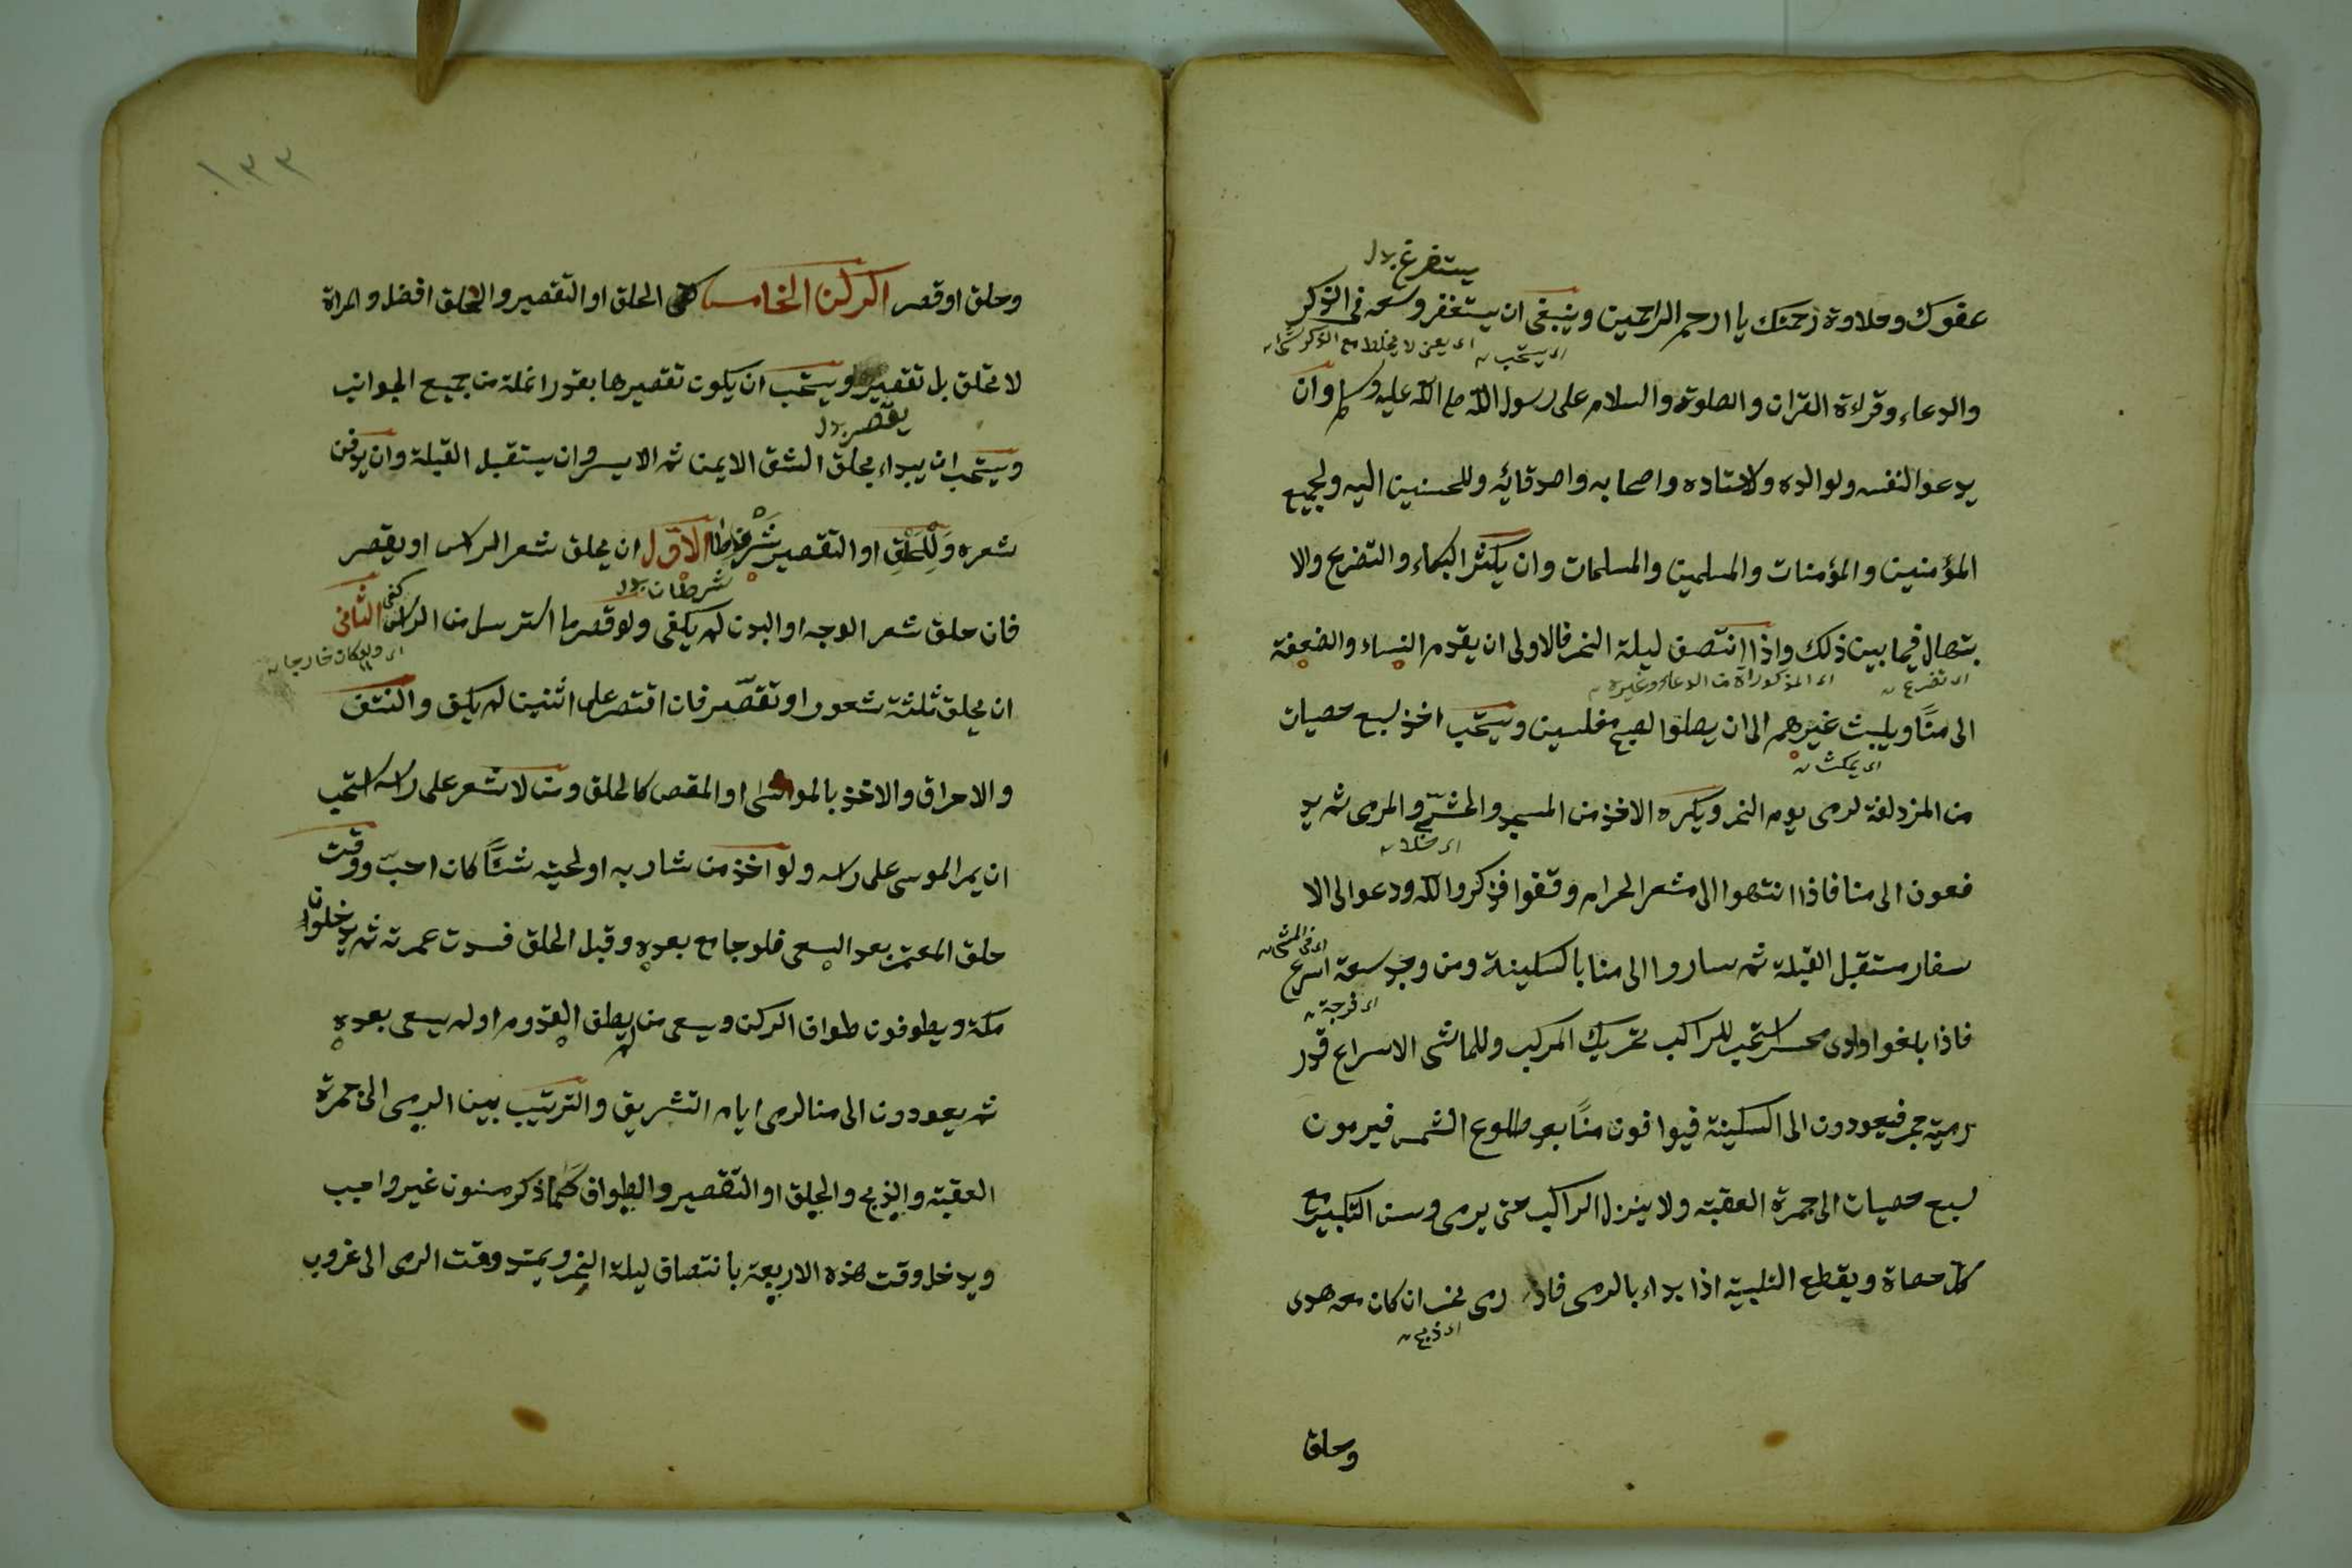 يستفرغ بدل
عفوك وحلاوة رحمتك يا ارحم الراحمين وينبغى ان يستغفر وسعه فى الذكر
اى يستحب
اى يعنى لا يخلط مع الذكر شيئا
والدعاء وقراءة القران والصلوة والسلام على رسول الله صلى الله عليه وسلم وان
يدعو لنفسه ولوالده ولاستاده واصحابه واصدقائه وللمحسنين اليه ولجميع
المؤمنين والمؤمنات والمسلمين والمسلمات وان يكثر البكاء والتضرع والا
بتهال فيما بين ذلك واذا انتصف ليلة النحر فالاولى ان يقدم النساء والضعفة
اى تضرع
اى المذكوراة من الدعاء وغيره
الى منًا ويلبث غيرهم الى ان يصلوا لصبح مغلسين ويستحب اخذ لسبع حصيات
اى يمكث
من المزدلفة لرمى يوم النحر ويكره الاخذ من المسجد والحش والمرمى ثم يد
اى خلا
فعون الى منا فاذا انتهوا الى مشعر الحرام وقفوا فذكروا الله ودعو الى الا
سفار مستقبل القبلة ثم ساروا الى منا بالسكينة ومن وجد سعة اسرع
اى فى المشى
اى فرجة
فاذا بلغوا وادى محسر استحب للراكب تحريك المركب وللماشى الاسراع قدر
رمية حجر فيعودون الى السكينة فيوافون منًا بعد طلوع الشمس فيرمون
لسبع حصيات الى جمرة العقبة ولا ينزل الراكب حتى يرمى وسن التكبير مع
كل حصاة ويقطع التلبية اذا بداء بالرمى فاذا رمى نحر ان كان معه هدى
اى ذبح
وحلق
١٣٣
وحلق او قصر الركن الخامس الحلق او التقصير والحلق افضل والمراة
لا تحلق بل تقصير ويستحب ان يكون تقصيرها بقدر انملة من جميع الجوانب
يقصر بدل
ويستحب ان يبداء بحلق الشق الايمن ثم الايسر وان يستقبل القبلة وان يدفن
شعره وللحلق او التقصير شرطا الاول ان يحلق شعر الراس او يقصر
شرطان بدل
فان حلق شعر الوجه او البدن لم يكفى ولو قصر ما استرسل من الراس كفى الثانى
اى ولو كان خارجا
ان يحلق ثلثة شعور او تقصّر فان اقتصر على اثنين لم يكف والنتف
والاحراق والاخذ بالموسى او المقص كالحلق ومن لا شعر على راسه استحب
ان يمر الموسى على راسه ولو اخذ من شاربه او لحيته شئًا كان احبّ ووقت
حلق المعتمر بعد السعى فلو جامع بعده وقبل الحلق فسدت عمرته ثم يدخلون
مكة ويطوفون طواف الركن ويسعى من لم يطف القدوم او لم يسعى بعده
ثم يعودون الى منا لرمى ايام التشريق والترتيب بين الرمى الى جمرة
العقبة والذبح والحلق او التقصير والطواف كما ذكر مسنون غير واجب
ويدخل وقت هذه الاربعة بانتصاف ليلة النحر ويمتد وقت الرمى الى غروب